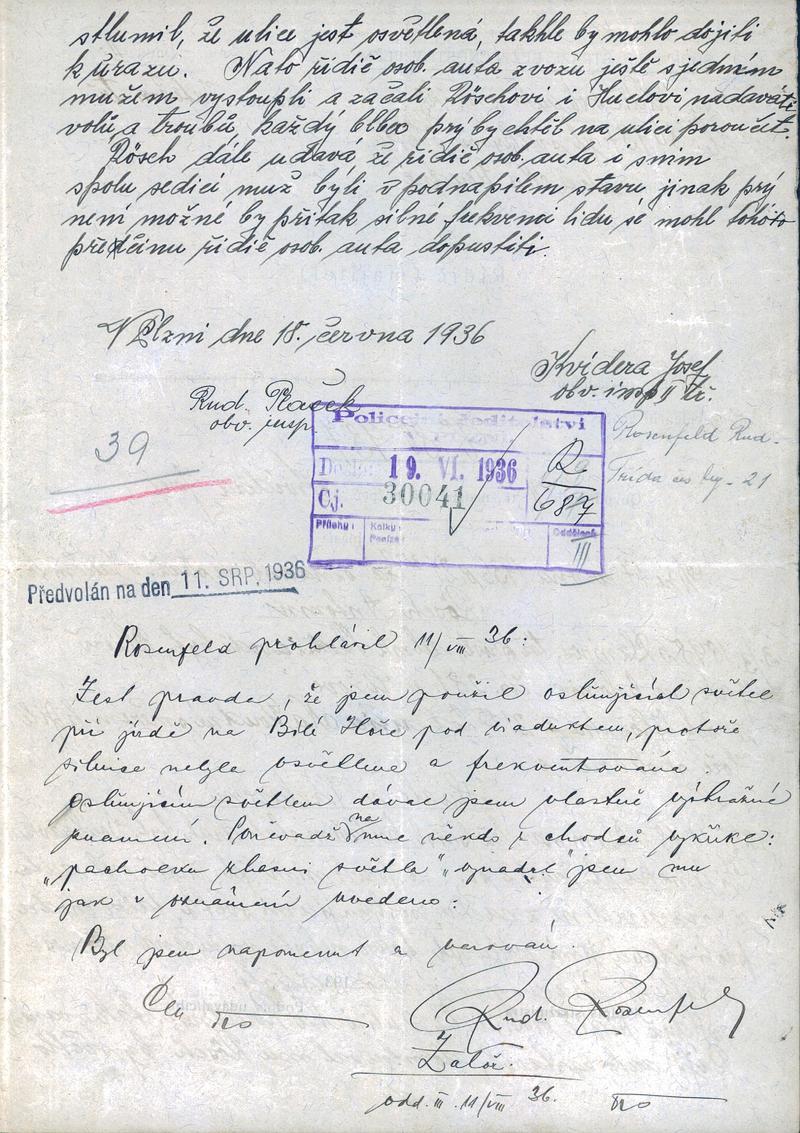 stlumil, že ulice jest osvětlená, takhle by mohlo dojíti
k úrazu. Nato řidič osob. auta z vozu ještě s jedním
mužem vystoupli a začali Röschovi i Huclovi nadávati
volů a troubů, každý blbec prý by chtěl na ulici poroučet.
Rösch dále udává, že řidič osob. auta i s ním
spolu sedící muž byli v podnapilém stavu jinak prý
není možné by při tak silné frekvenci lidu se mohl tohoto
přečinu řidič osob. auta dopustiti.
V Plzni dne 18. června 1936
Kvídera Josef
obv. insp II tř.
Rud. Ptáček
obv. insp.
Policejní ředitelství
Rosenfeld Rud.
39
Došlo: 19. VI. 1936
Třída - 21
Čj. 30041
687
Přílohy: Kolky: Oddělení
III
Předvolán na den 11. SRP. 1936
Rosenfeld prohlásil 11/VIII 36:
Jest pravda, že jsem použil oslňujících světel
při jízdě na Bílé Hoře pod viaduktem, protože
silnice nebyla osvětlena a frekventována.
Oslňujícím světlem dával jsem vlastně výstražné
znamení. Poněvadž na mne někdo z chodců vykřikl:
„pacholku zhasni světla" „vynadal" jsem mu
jak v oznámení uvedeno.
Byl jsem napomenut a varován.
Rud. Rosenfeld
Založ.
odd. III. 11/VIII 36.